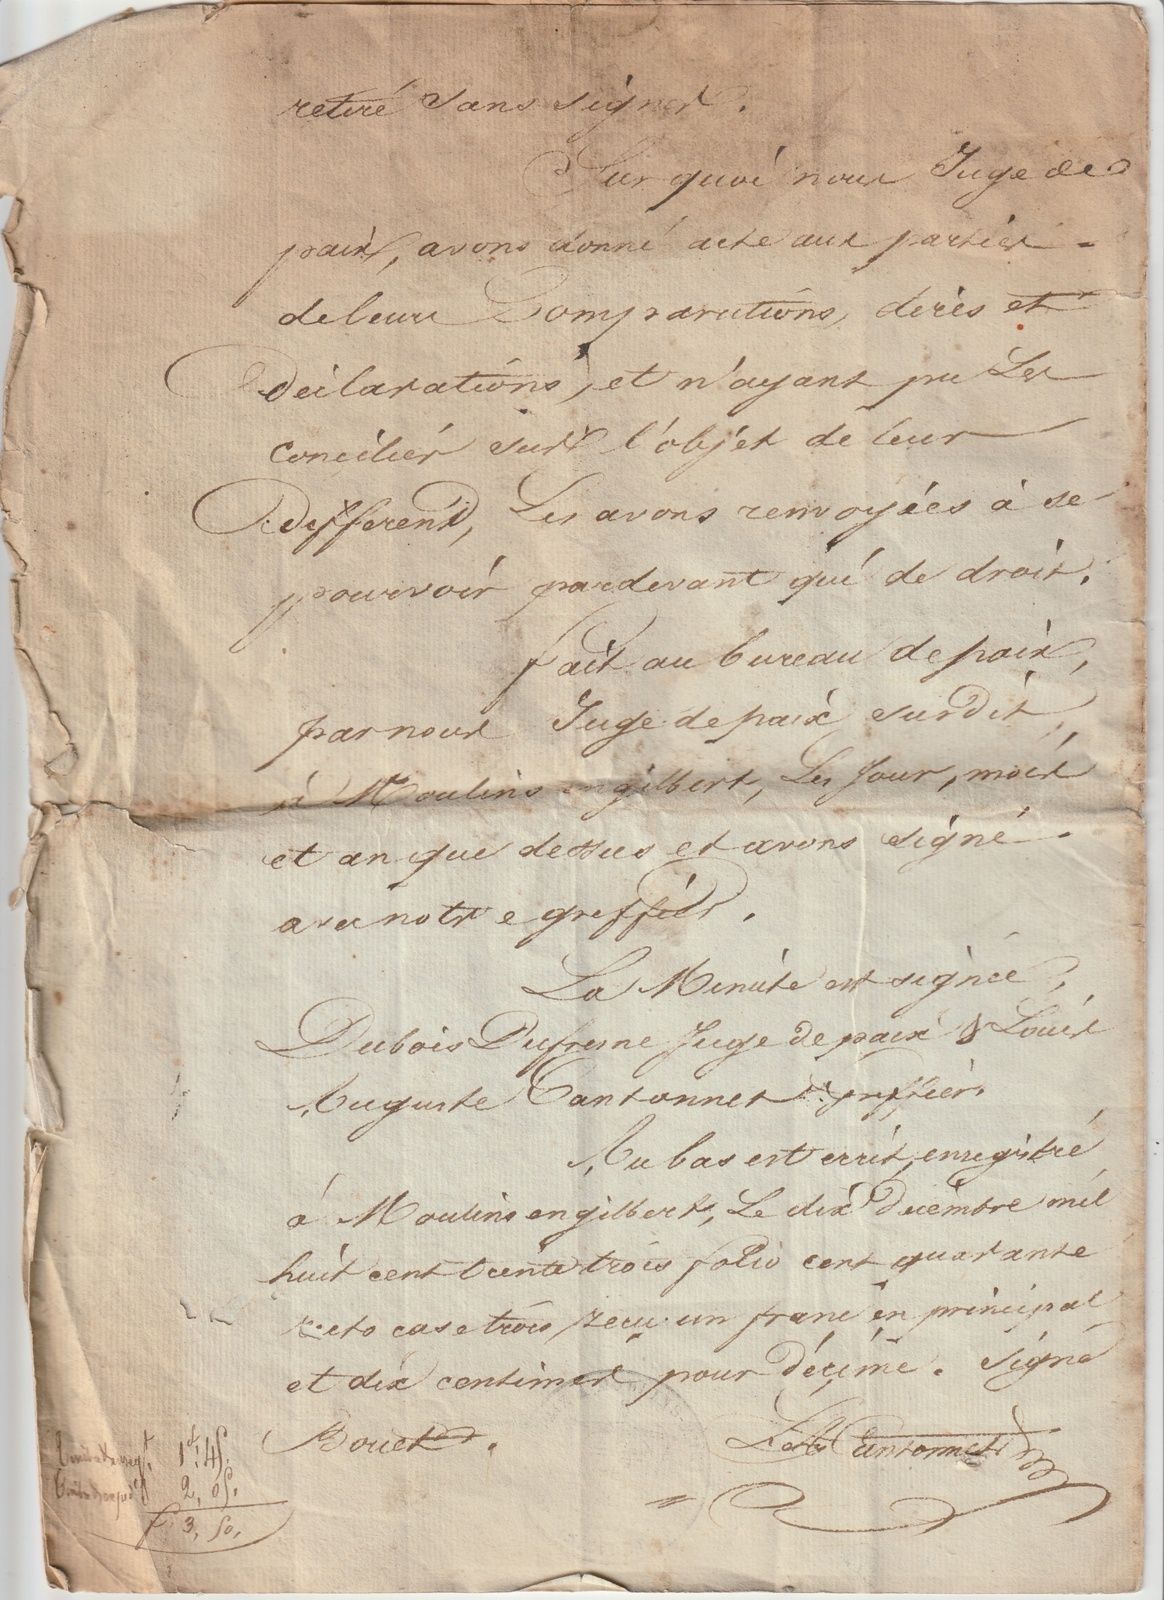 retiré sans signer.
Sur quoi nous Juge de
paix, avons donné acte aux parties
de leurs Comparutions, dires et
déclarations, et n'ayant pu Les
concilier sur l'objet de leur
différend, Les avons renvoyées à se
pourvoir pardevant qui de droit.
fait au bureau de paix,
par nous Juge de paix susdit,
à Moulins engilbert, Les Jour, mois
et an que dessus et avons signé
avec notre greffier.
La Minute est signée,
Dubois Dufresne Juge de paix & Louis
Auguste Cantonnet greffier.
Au bas est ecrit, enregistré
à Moulins engilbert, Le dix Decembre mil
huit cent trente trois folio cent quarante
recto case trois, reçu un franc en principal
et dix centimes pour Décime. Signé
Bouet.
Cantonnet
1. 45.
2, 05.
f. 3, 50.